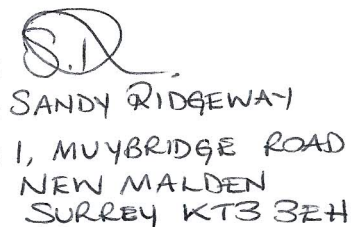 S.R.
SANDY RIDGEWAY
1, MUYBRIDGE ROAD
NEW MALDEN
SURREY KT3 3EH